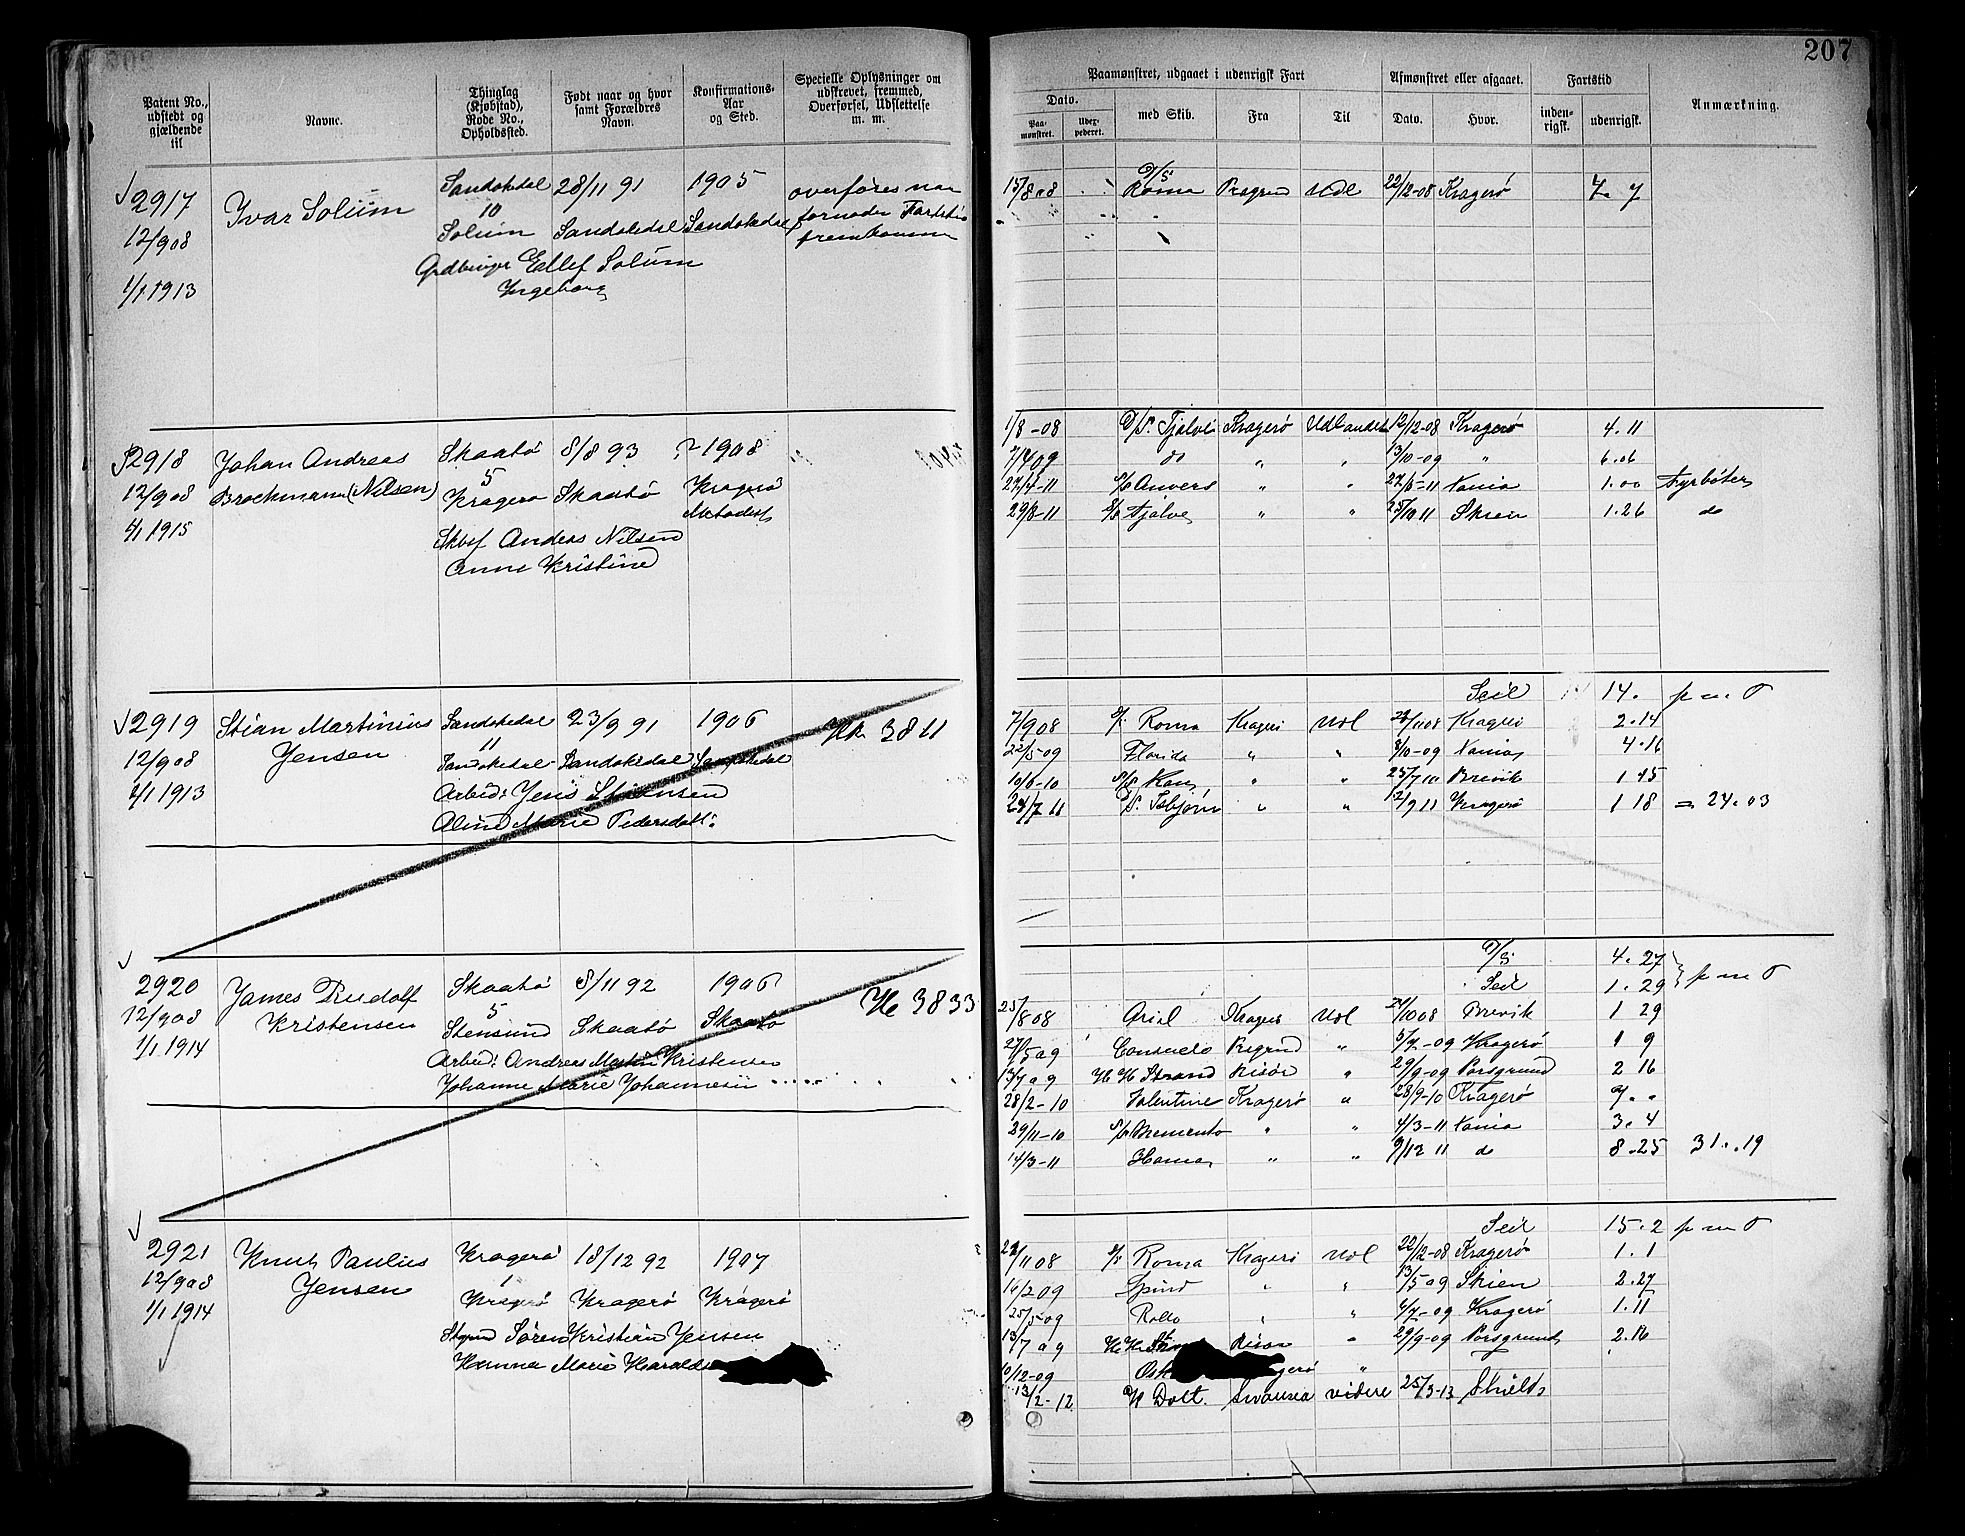 207
Patent No., udstedt og gjældende til
Navne.
Thinglag (Kjøbstad), Rode No., Opholdssted.
Født naar og hvor samt Forældres Navn.
Konfirmations-Aar og Sted.
Specielle Oplysninger om udskrevet, fremmed, Overførsel, Udslettelse m. m.
Paamønstret, udgaaet i udenrigsk Fart
Afmønstret eller afgaaet.
Fartstid
Anmærkning.
Dato.
Paamønstret.
Udexpederet.
med Skib.
Fra
Til
Dato.
Hvor.
indenrigsk.
udenrigsk.
2917 Ivar Solum Sandøkedal 28/11 91 1905 overføres naar
10
12/9 08 Solum Sandøkedal Sandøkedal fornøden Fartstid
fremkommer
Gaardbruger Ellef Solum
1/1 1913 Ingeborg
15/8 08 D/S Roma Udl 22/12-08 Kragerø 4. 7
2918 Johan Andreas Skaatø 8/8 93 ? 1908
5
12/9 08 Brockmann (Nilsen) Kragerø Skaatø Kragerø
Metodist
1/1 1915 Skbsf Anders Nilsen
Anne Kristine
1/8-08 D/S. Fjalve Kragerø Udlandet 12/12-08 Kragerø 4.11
7/4 09 do " " 13/10-09 " 6.06
Anvers " " Xania 1.00 Fyrbøter
29/8-11 S/S Fjalve " " 25/10 11 Skien 1.26 do
2919 Stian Martinius Sandøkedal 23/9 91 1906 Hk. 3811
11
12/9 08 Jensen Sandøkedal Sandøkedal Sandøkedal
1/1 1913 Arbeid: Jens Stiansen
Aline Marie Pedersdatt:
Seil 14. p m O
7/9 08 S/S Roma Kragerø Udl Kragerø 2.14
22/5 09 Florida " " 8/10-09 Xania 4.16
" " 25/7 10 Brevik 1 15
24/7 11 D/S. Isbjørn " " 12/9 11 Kragerø 1 18 = 24.03
2920 James Rudolf Skaatø 8/11 92 1906 Hk 3833
5
12/9 08 Kristensen Stensund Skaatø Skaatø
1/1 1914 Arbeid: Andreas Martin Kristensen
Johanne Marie Johannesen
D/S 4.27
Seil 1.29 p m O
25/8 08 Ariel Kragerø Udl 24/10 08 Brevik 1 29
27/5 09 Consuelo Prsgrnd " 5/7-09 Kragerø 1 9
13/7 09 H. H Strand Risør " 29/9-09 Porsgrund 2 16
28/2-10 Valentine Kragerø " 28/9-10 Kragerø 7. "
29/11-10 S/S Memento " " 4/3-11 Xania 3.4
14/3-11 " " 9/12 11 do 8.25 31..19
2921 Knut Paulius Kragerø 18/12 92 1907
1
12/9 08 Jensen Kragerø Kragerø Kragerø
1/1 1914 Søren Kristian Jensen
Hanna Marie
Seil 15.2 p m O
S/S Roma Kragerø Udl 22/12-08 Kragerø 1.1
16/2 09 Spind " " 13/5 09 Skien 2.27
25/5 09 Rollo " " 6/7-09 Kragerø 1.11
13/7 09 H. H. Risør " 29/9-09 Porsgrund 2.16
10/12-09 "
13/2-12 Dolt. Swansea videre 25/3-13 Shields